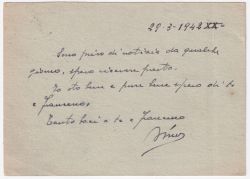 29-3-1942 XX°
Sono privo di notizie da qualche
giorno, spero ricevere presto.
Io sto bene e pure bene spero di te
e
Tanti baci a te e